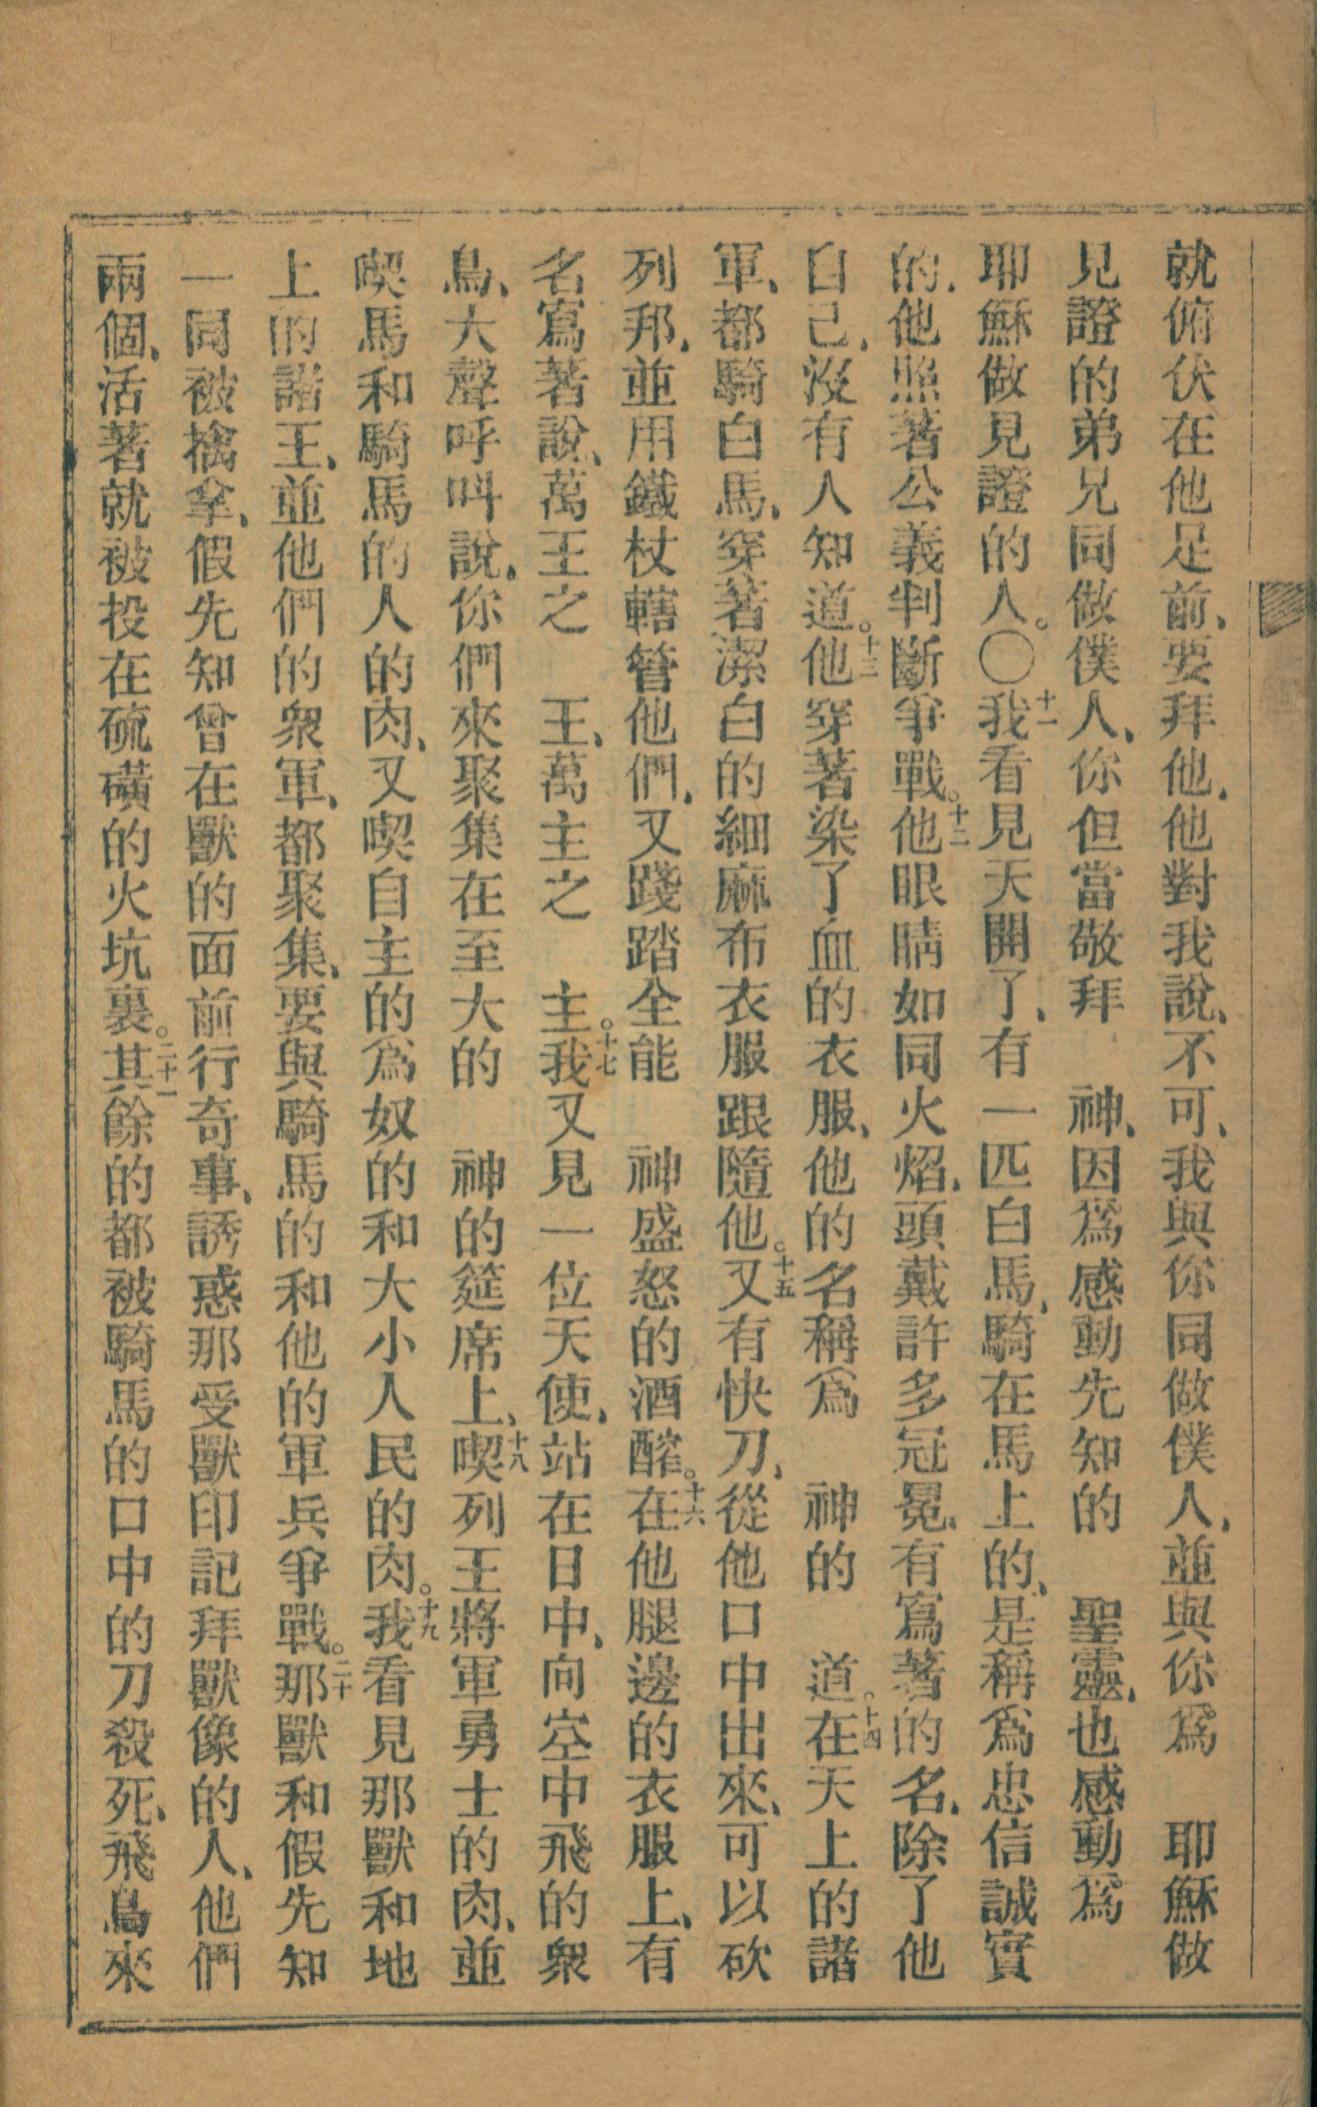 就俯伏在他足前、要拜他、他對我說、不可、我與你同做僕人、並與你爲　耶穌做
見證的弟兄同做僕人、你但當敬拜　神、因爲感動先知的　聖靈、也感動爲
耶穌做見證的人。〇十一我看見天開了、有一匹白馬、騎在馬上的、是稱爲忠信誠實
的、他照著公義判斷爭戰。十二他眼睛如同火焰、頭戴許多冠冕、有寫著的名、除了他
自己、沒有人知道。十三他穿著染了血的衣服、他的名稱爲　神的　道。十四在天上的諸
軍、都騎白馬、穿著潔白的細麻布衣服跟隨他。十五又有快刀、從他口中出來、可以砍
列邦、並用鐵杖轄管他們、又踐踏全能　神盛怒的酒醡。十六在他腿邊的衣服上、有
名寫著說、萬王之　王、萬主之　主。十七我又見一位天使、站在日中、向空中飛的衆
鳥、大聲呼叫說、你們來聚集在至大的　神的筵席上、十八喫列王將軍勇士的肉、並
喫馬和騎馬的人的肉、又喫自主的爲奴的和大小人民的肉。十九我看見那獸和地
上的諸王、並他們的衆軍、都聚集、要與騎馬的和他的軍兵爭戰。二十那獸和假先知
一同被擒拿、假先知曾在獸的面前行奇事、誘惑那受獸印記拜獸像的人、他們
兩個、活著就被投在硫磺的火坑裏。二十一其餘的都被騎馬的口中的刀殺死、飛鳥來